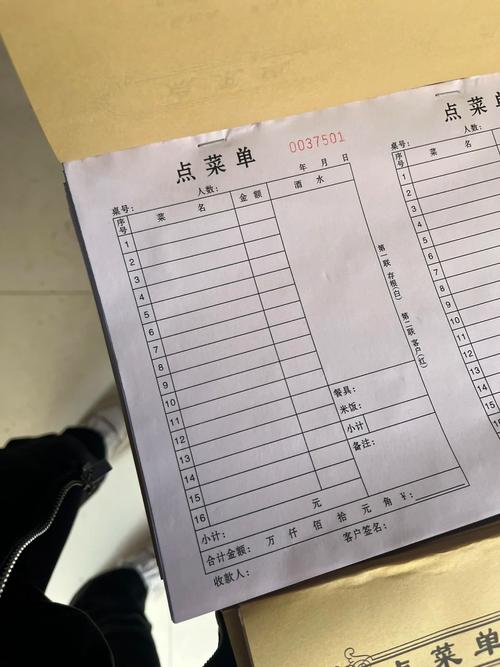 点菜单
0037501
桌号：
人数：
年 月 日
序号
菜 名
金额
酒 水
1
2
3
4
5
6
7
8
9
10
11
12
13
14
15
16
餐具：
米饭：
小计
备注：
小计：
元
合计金额： 万 仟 佰 拾 元 角 ￥：
收款人：
客户签名：
第一联 存根(白)
第二联 客户(红)
点菜单
桌号：
人数：
序号
菜
1
2
3
4
5
6
7
8
9
10
11
12
13
14
15
16
点菜单